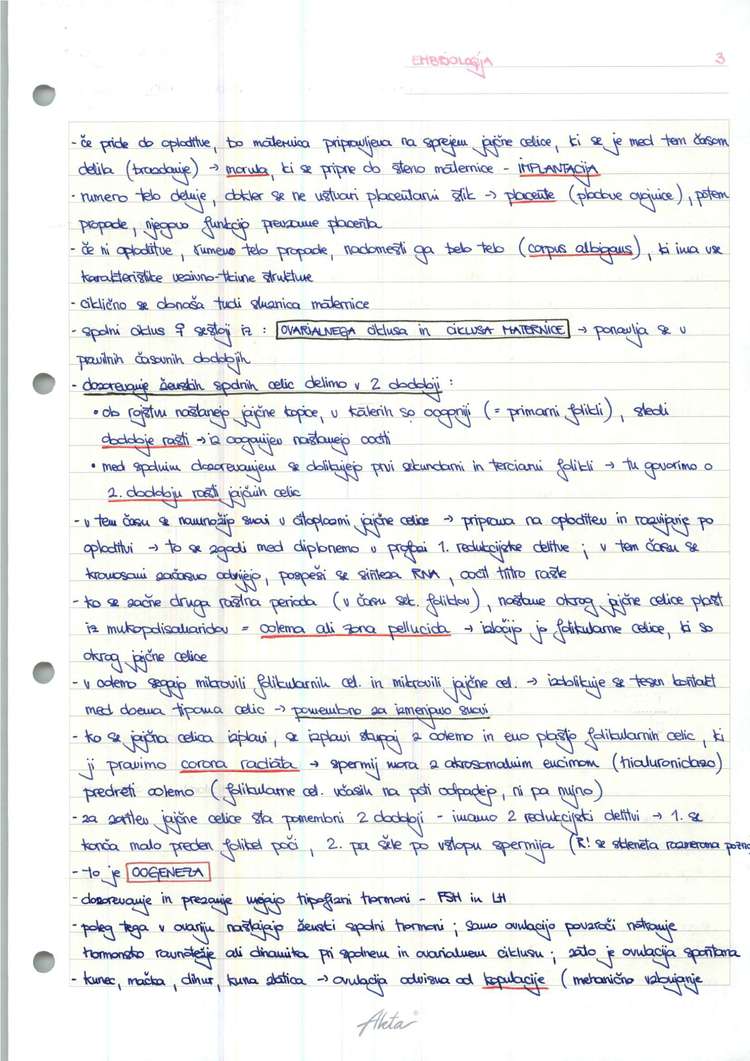 EMBRIOLOGIJA 3
- če pride do oploditve, bo maternica pripravljena na sprejem jajčne celice, ki se je med tem časom
delila (brazdanje) → morula, ki se pripne do steno maternice - IMPLANTACIJA
- rumeno telo deluje, dokler se ne ustvari placentarni stik → placente (plodove ovojnice), potem
propade, njegovo funkcijo prevzame placenta
- če ni oploditve, rumeno telo propade, nadomesti ga belo telo (corpus albigans), ki ima vse
karakteristike vezivno-tkivne strukture
- ciklično se obnaša tudi sluznica maternice
- spolni ciklus ♀ sestoji iz : OVARIALNEGA ciklusa in CIKLUSA MATERNICE → ponavlja se v
pravilnih časovnih obdobjih
- dozorevanje ženskih spolnih celic delimo v 2 obdobji :
• ob rojstvu nastanejo jajčne kopice, v katerih so oogoniji (= primarni folikli), sledi
obdobje rasti → iz oogonijev nastanejo oociti
• med spolnim dozorevanjem se oblikujejo prvi sekundarni in terciarni folikli → tu govorimo o
2. obdobju rasti jajčnih celic
- v tem času se namnožijo snovi v citoplazmi jajčne celice → priprava na oploditev in razvijanje po
oploditvi → to se zgodi med diplonemo v profazi 1. redukcijske delitve ; v tem času se
kromosomi začasno odvijejo, pospeši se sinteza RNA, oocit hitro raste
- ko se začne druga rastna perioda (v času sek. foliklov), nastane okrog jajčne celice plast
iz mukopolisaharidov = oolema ali zona pellucida → izločijo jo folikularne celice, ki so
okrog jajčne celice
- v oolemo segajo mikrovili folikularnih cel. in mikrovili jajčne cel. → izoblikuje se tesen kontakt
med obema tipoma celic → pomembno za izmenjavo snovi
- ko se jajčna celica izplavi, se izplavi skupaj z oolemo in eno plastjo folikularnih celic, ki
ji pravimo corona radiata → spermij mora z akrosomalnim encimom (hialuronidazo)
predreti oolemo (folikularne cel. včasih na poti odpadejo, ni pa nujno)
- za zoritev jajčne celice sta pomembni 2 obdobji - imamo 2 redukcijski delitvi → 1. se
konča malo preden folikel poči, 2. pa šele po vstopu spermija (R! se skleneta razmeroma pozno
- to je OOGENEZA
- dozorevanje in prezanje urejajo hipofizni hormoni - FSH in LH
- poleg tega v ovariju nastajajo ženski spolni hormoni ; samo ovulacijo povzroči notranje
hormonsko ravnotežje ali dinamika pri spolnem in ovarialnem ciklusu ; zato je ovulacija spontana
- kunec, mačka, dihur, kuna zlatica → ovulacija odvisna od kopulacije (mehanično vzburjanje
Akta